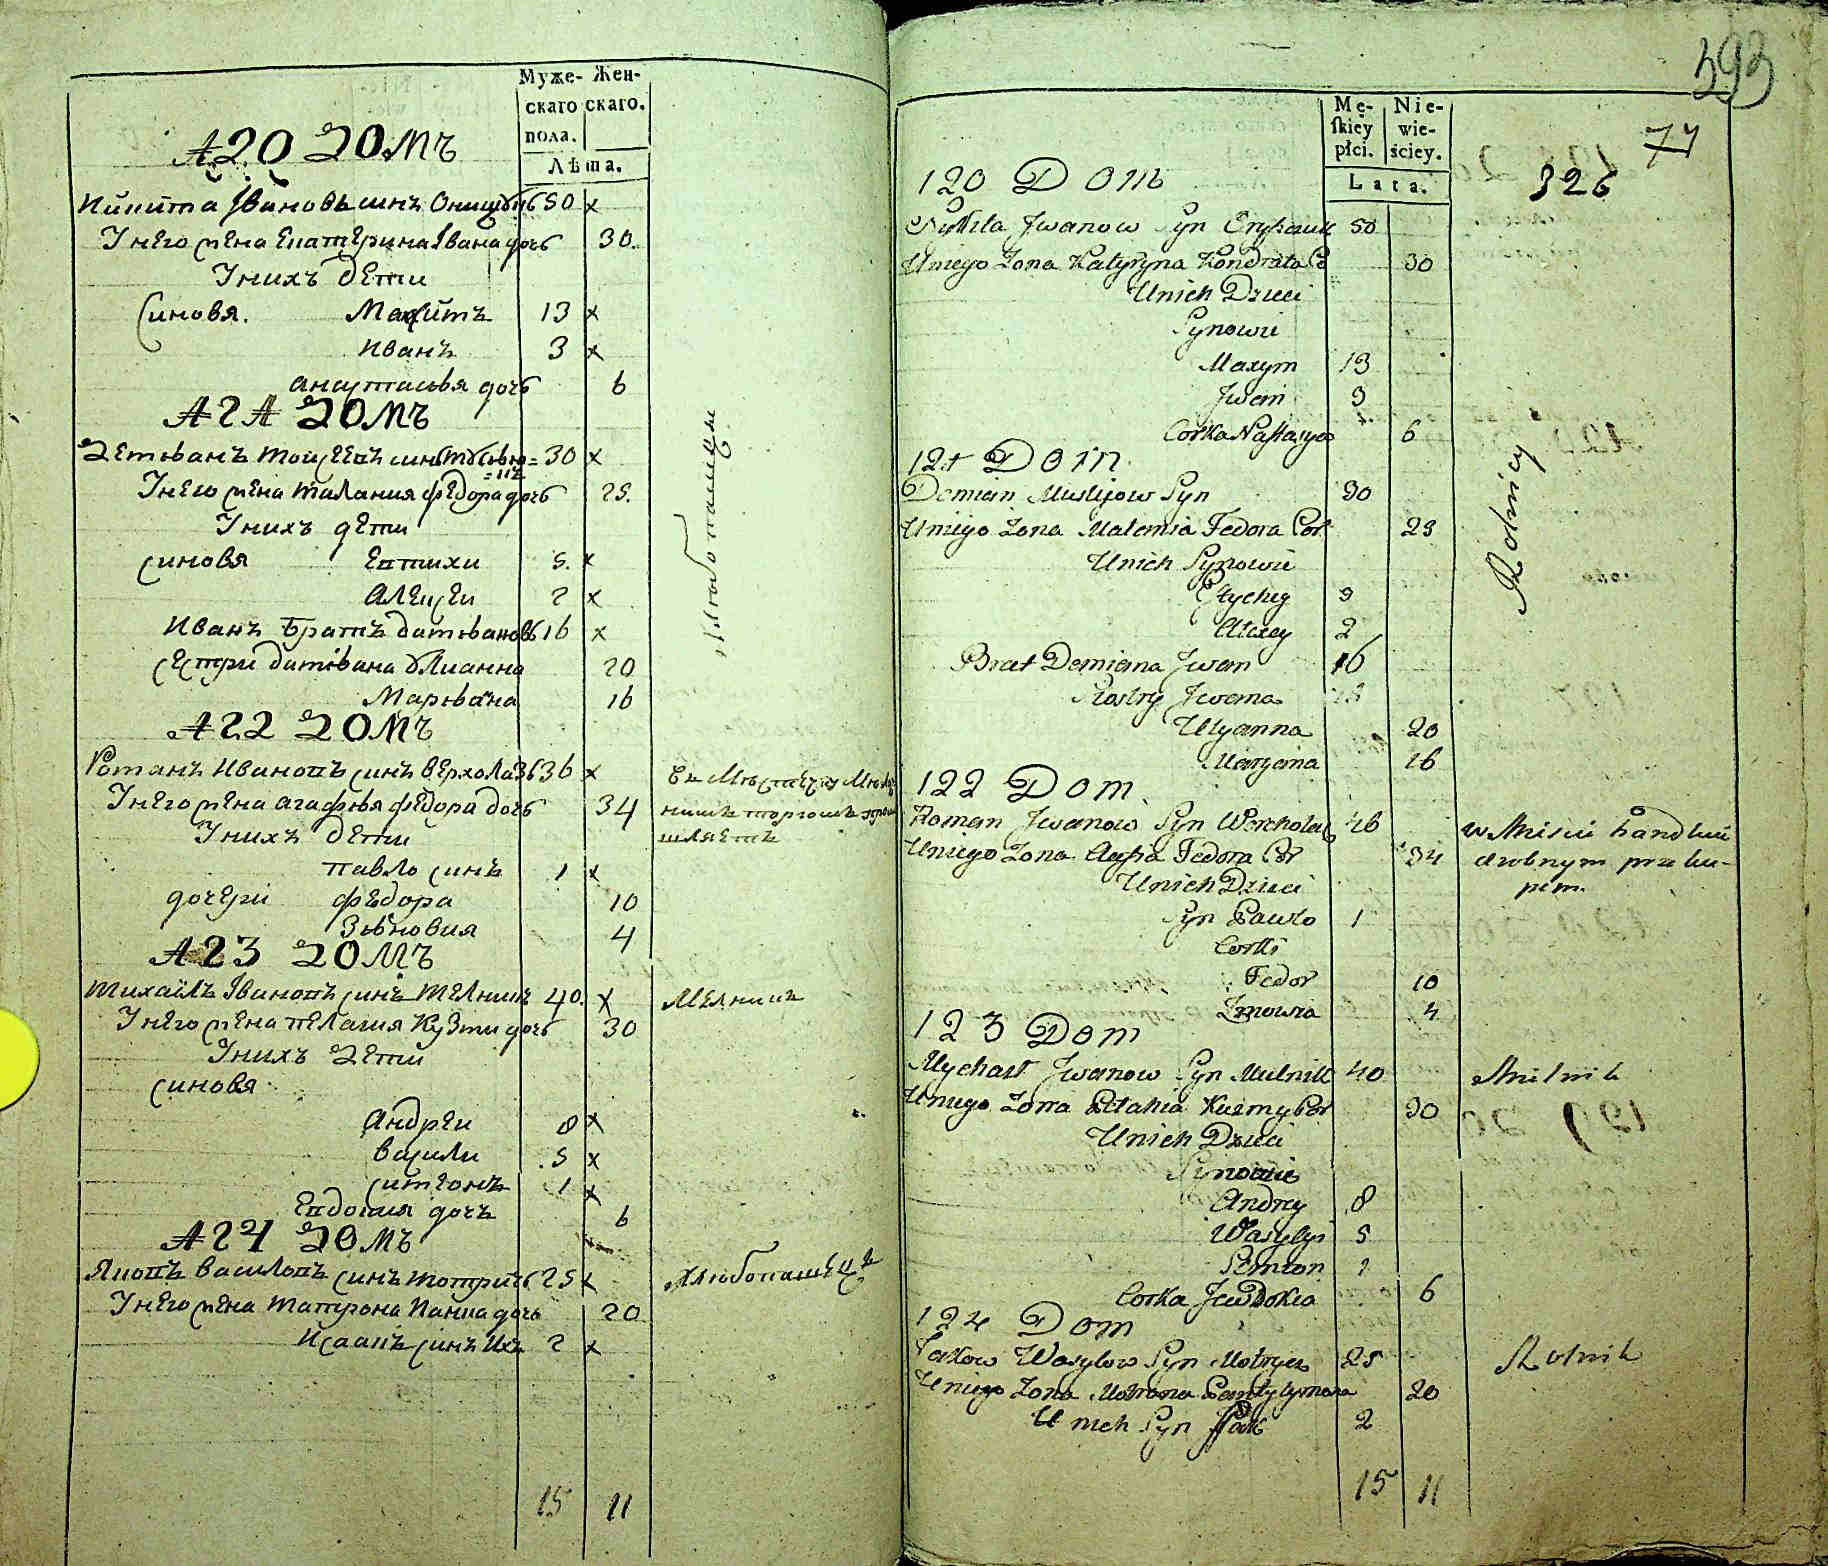 Муже- Жен-
скаго скаго.
пола.
Лѣта.
А20 ДОМЪ
Никита Ивановъ синъ 50 х
У него жена Екатерина Ивана дочь 30.
У нихъ дети
Синовя. Максимъ 13 х
Иванъ 3 х
Анастасья дочь 6
А2А ДОМЪ
Демьянъ Моисеевъ синъ 30 х
У него жена Малания Федора дочь 25.
У нихъ дети
синовя Евтихи 5. х
Алексеи 2 х
Иванъ братъ Демьяновъ 16 х
сестри Демьяна Улианна 20
Марьяна 16
А22 ДОМЪ
Романъ Ивановъ синъ Верхолазъ 36 х
У него жена Агафья Федора дочь 34
У нихъ дети
Павло синъ 1 х
дочери Федора 10
Зѣновия 4
А23 ДОМЪ
Михайлъ Ивановъ синъ Мелникъ 40. х
У него жена Пелагия Кузми дочь 30
У нихъ Дети
синовя
Андреи 8 х
Васили 5 х
Симеонъ 1 х
Евдокия дочь 6
А24 ДОМЪ
Яковъ Василовъ синъ Мотричъ 25 х
У него жена Матрона дочь 20
Исаакъ синъ ихъ 2 х
15 11
Хлебопашцы
торгомъ
Мелникъ
Хлебопашецъ
393
74
326
Mę- Nie-
skiey wie-
płci. ściey.
Lata.
120 Dom
Nykita Jwanow Syn 50
Uniego Zona Katyryna Kondrata C 30
Unich Dzieci
Synowie
Maxym 13
Jwan 3
Corka Nastasya 6
121 Dom
Demian Musijow Syn 30
Uniego Zona Malania Fedora Cor 25
Unich Synowie
Eftychey 5
Alexey 2
Brat Demiana Jwan 16
Siostry Jwana
Ulyanna 20
Maryana 16
122 Dom
Roman Jwanow Syn Wercholaz 46
Uniego Zona Aafia Fedora Cor 34
Unich Dzieci
Syn Pawło 1
Corki
Fedor 10
Znowia 4
123 Dom
Mychało Jwanow Syn Mielnik 40
Uniego Zona Pelahia Kuzmy Cor 30
Unich Dzieci
Synowie
Andrey 8
Wasylyi 5
Semion 1
Corka Jewdokia 6
124 Dom
Jakow Wasylow Syn Motrycz 25
Uniego Zona Motrona Pantylymona 20
Unich Syn Jsak 2
15 11
Rolnicy
w Mieście handluie
drobnym przeku-
pem.
Mielnik
Rolnik